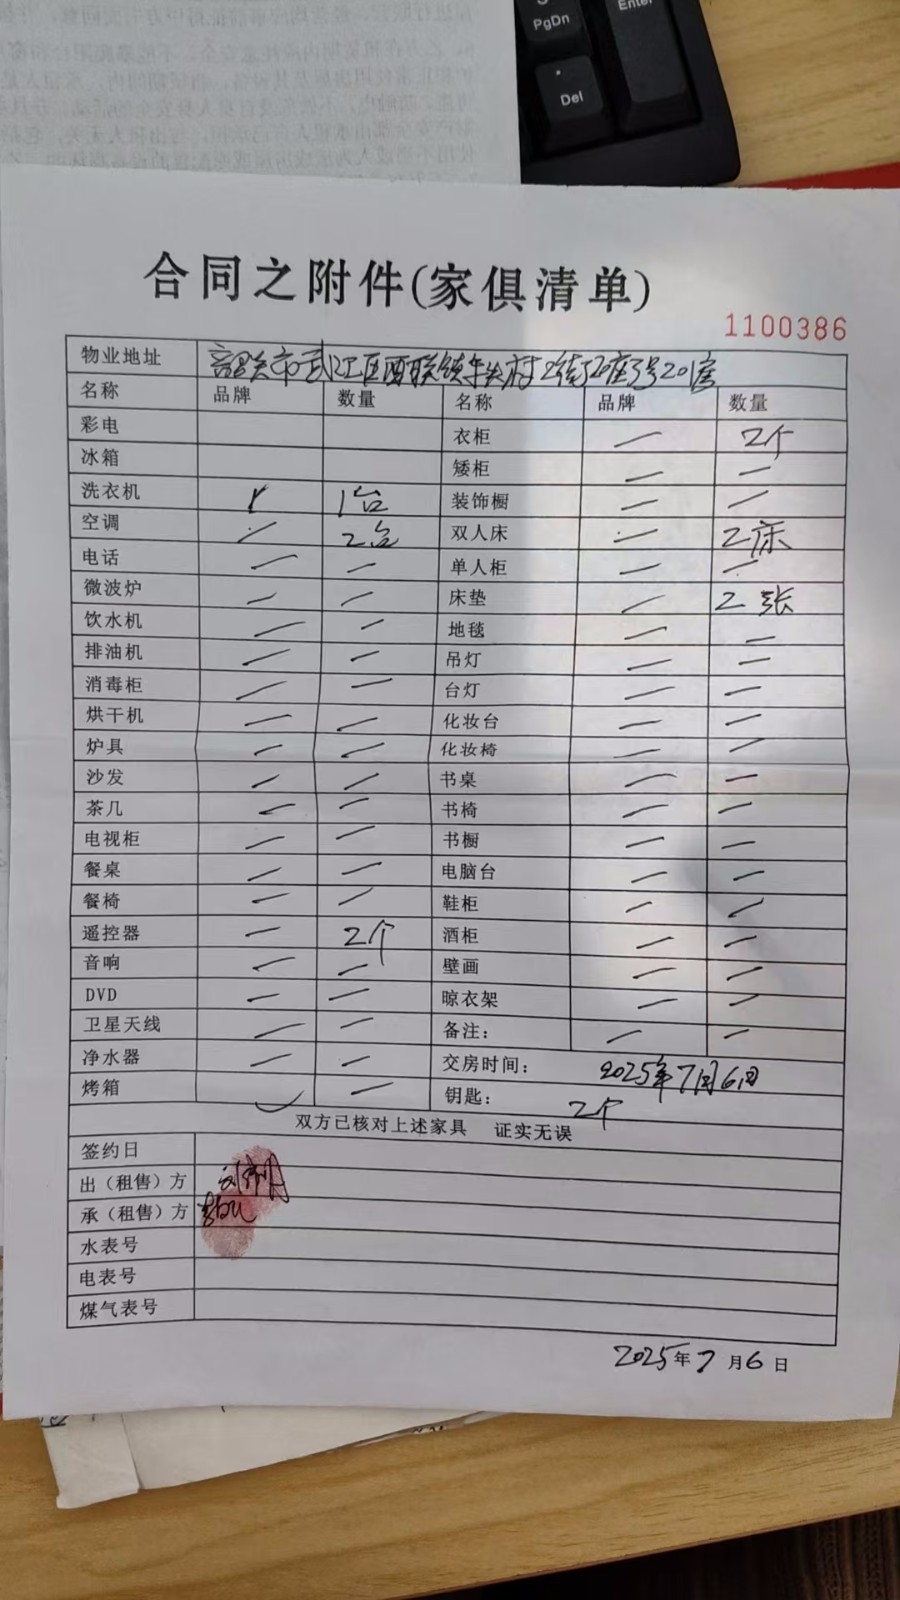 PgDn
Enter
Del
合同之附件(家俱清单)
1100386
物业地址 韶关市武江区西联镇
名称 品牌 数量 名称 品牌 数量
彩电 衣柜 — 2个
冰箱 矮柜 — —
洗衣机 1台 装饰橱 — —
空调 — 2台 双人床 — 2床
电话 — — 单人柜 — —
微波炉 — — 床垫 — 2张
饮水机 — — 地毯 — —
排油机 — — 吊灯 — —
消毒柜 — — 台灯 — —
烘干机 — — 化妆台 — —
炉具 — — 化妆椅 — —
沙发 — — 书桌 — —
茶几 — — 书椅 — —
电视柜 — — 书橱 — —
餐桌 — — 电脑台 — —
餐椅 — — 鞋柜 — —
遥控器 — 2个 酒柜 — —
音响 — — 壁画 — —
DVD — — 晾衣架 — —
卫星天线 — — 备注: — —
净水器 — — 交房时间: 2025年7月6日
烤箱 — 钥匙: 2个
双方已核对上述家具 证实无误
签约日
出（租售）方
承（租售）方
水表号
电表号
煤气表号
2025年7月6日